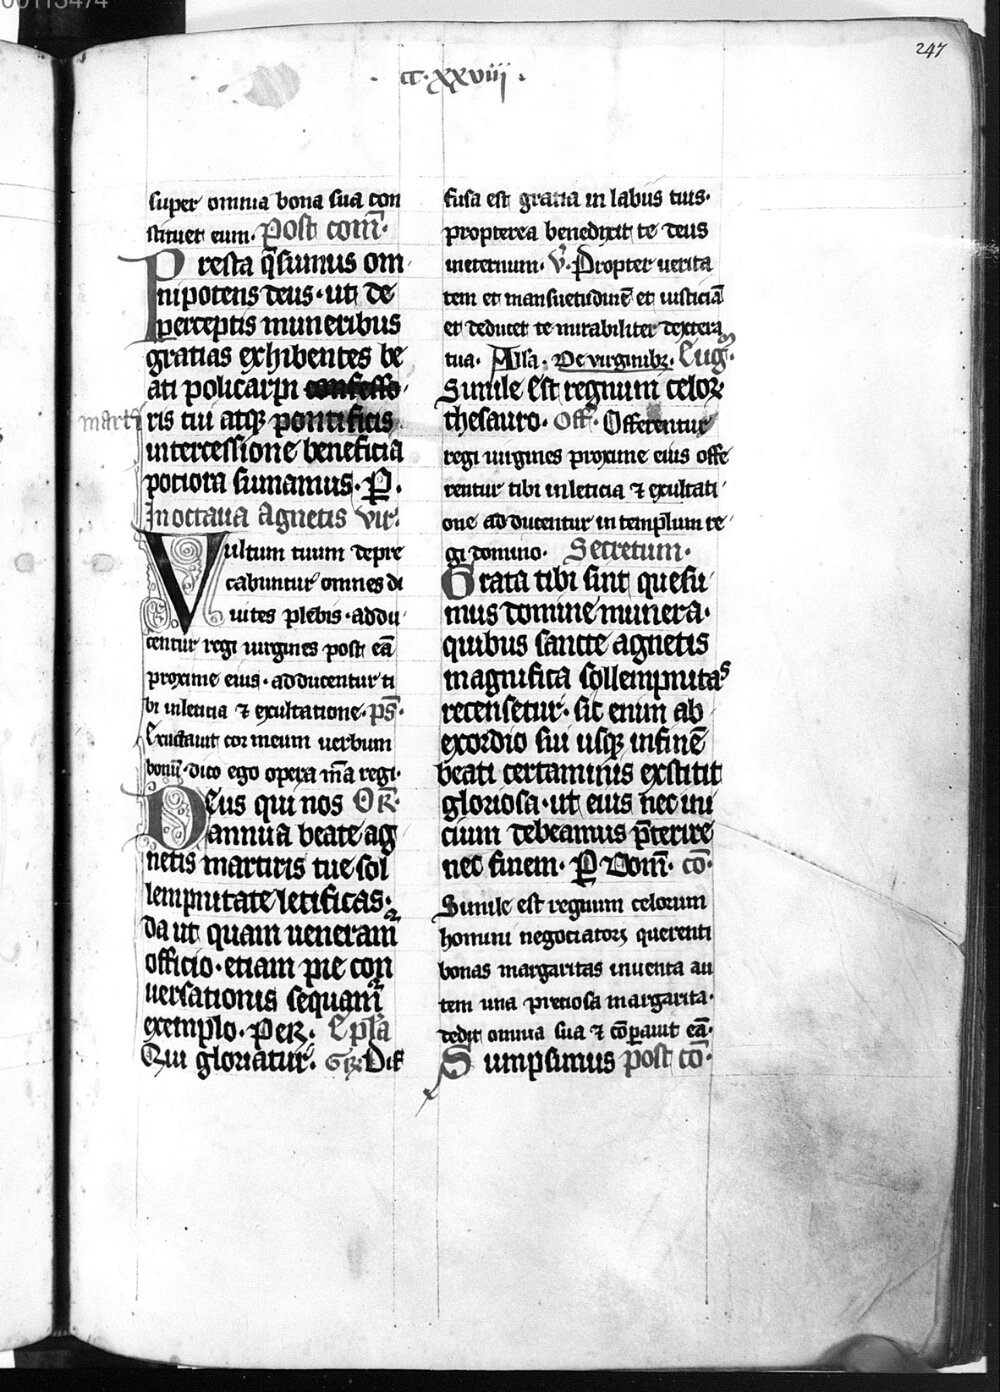 00113474
247
.cc.xxviij.
super omnia bona sua con
stituet eum. Post com̄.
Presta q̄sumus om
nipotens deus. ut de
perceptis muneribus
gratias exhibentes be
ati policarpi confesso
martī ris tui atqꝫ pontificis
intercessione beneficia
potiora sumamus. P̱.
In octaua Agnetis vir.
Vultum tuum depre
cabuntur omnes di
uites plebis. addu
centur regi uirgines post eā
proxime eius. adducentur ti
bi inleticia ⁊ exultatione. ps̄.
Eructauit cor meum uerbum
bonū. dico ego opera m̄a regi.
Deus qui nos OR̄.
annua beate ag
netis martiris tue sol
lempnitate letificas.
da ut quam ueneramr̄
officio. etiam pie con
uersationis sequamr̄
exemplo. Per. Ep̄la
Qui gloriatur. Gr̄. Dif
fusa est gratia in labiis tuis.
propterea benedixit te deus
ineternum. v̄. Propter uerita
tem et mansuetudinē et iusticiā
et deducet te mirabiliter dextera
tua. All̄a. De virginibꝫ. Eug̅m.
Simile est regnum celoꝝ
thesauro. Off̄. Offerentur
regi uirgines proxime eius offe
rentur tibi inleticia ⁊ exultati
one adducentur in templum re
gi domino. Secretum.
Grata tibi sint quesu
mus domine munera.
quibus sancte agnetis
magnifica sollempnitas
recensetur. sic enim ab
exordio sui usqꝫ infinē
beati certaminis exstitit
gloriosa. ut eius nec ini
cium debeamus p̄terire
nec finem. P̱ Dom̄. cō.
Simile est regnum celorum
homini negociatori querenti
bonas margaritas inuenta au
tem una preciosa margarita.
dedit omnia sua ⁊ cōparauit eā.
Sumpsimus post cō.